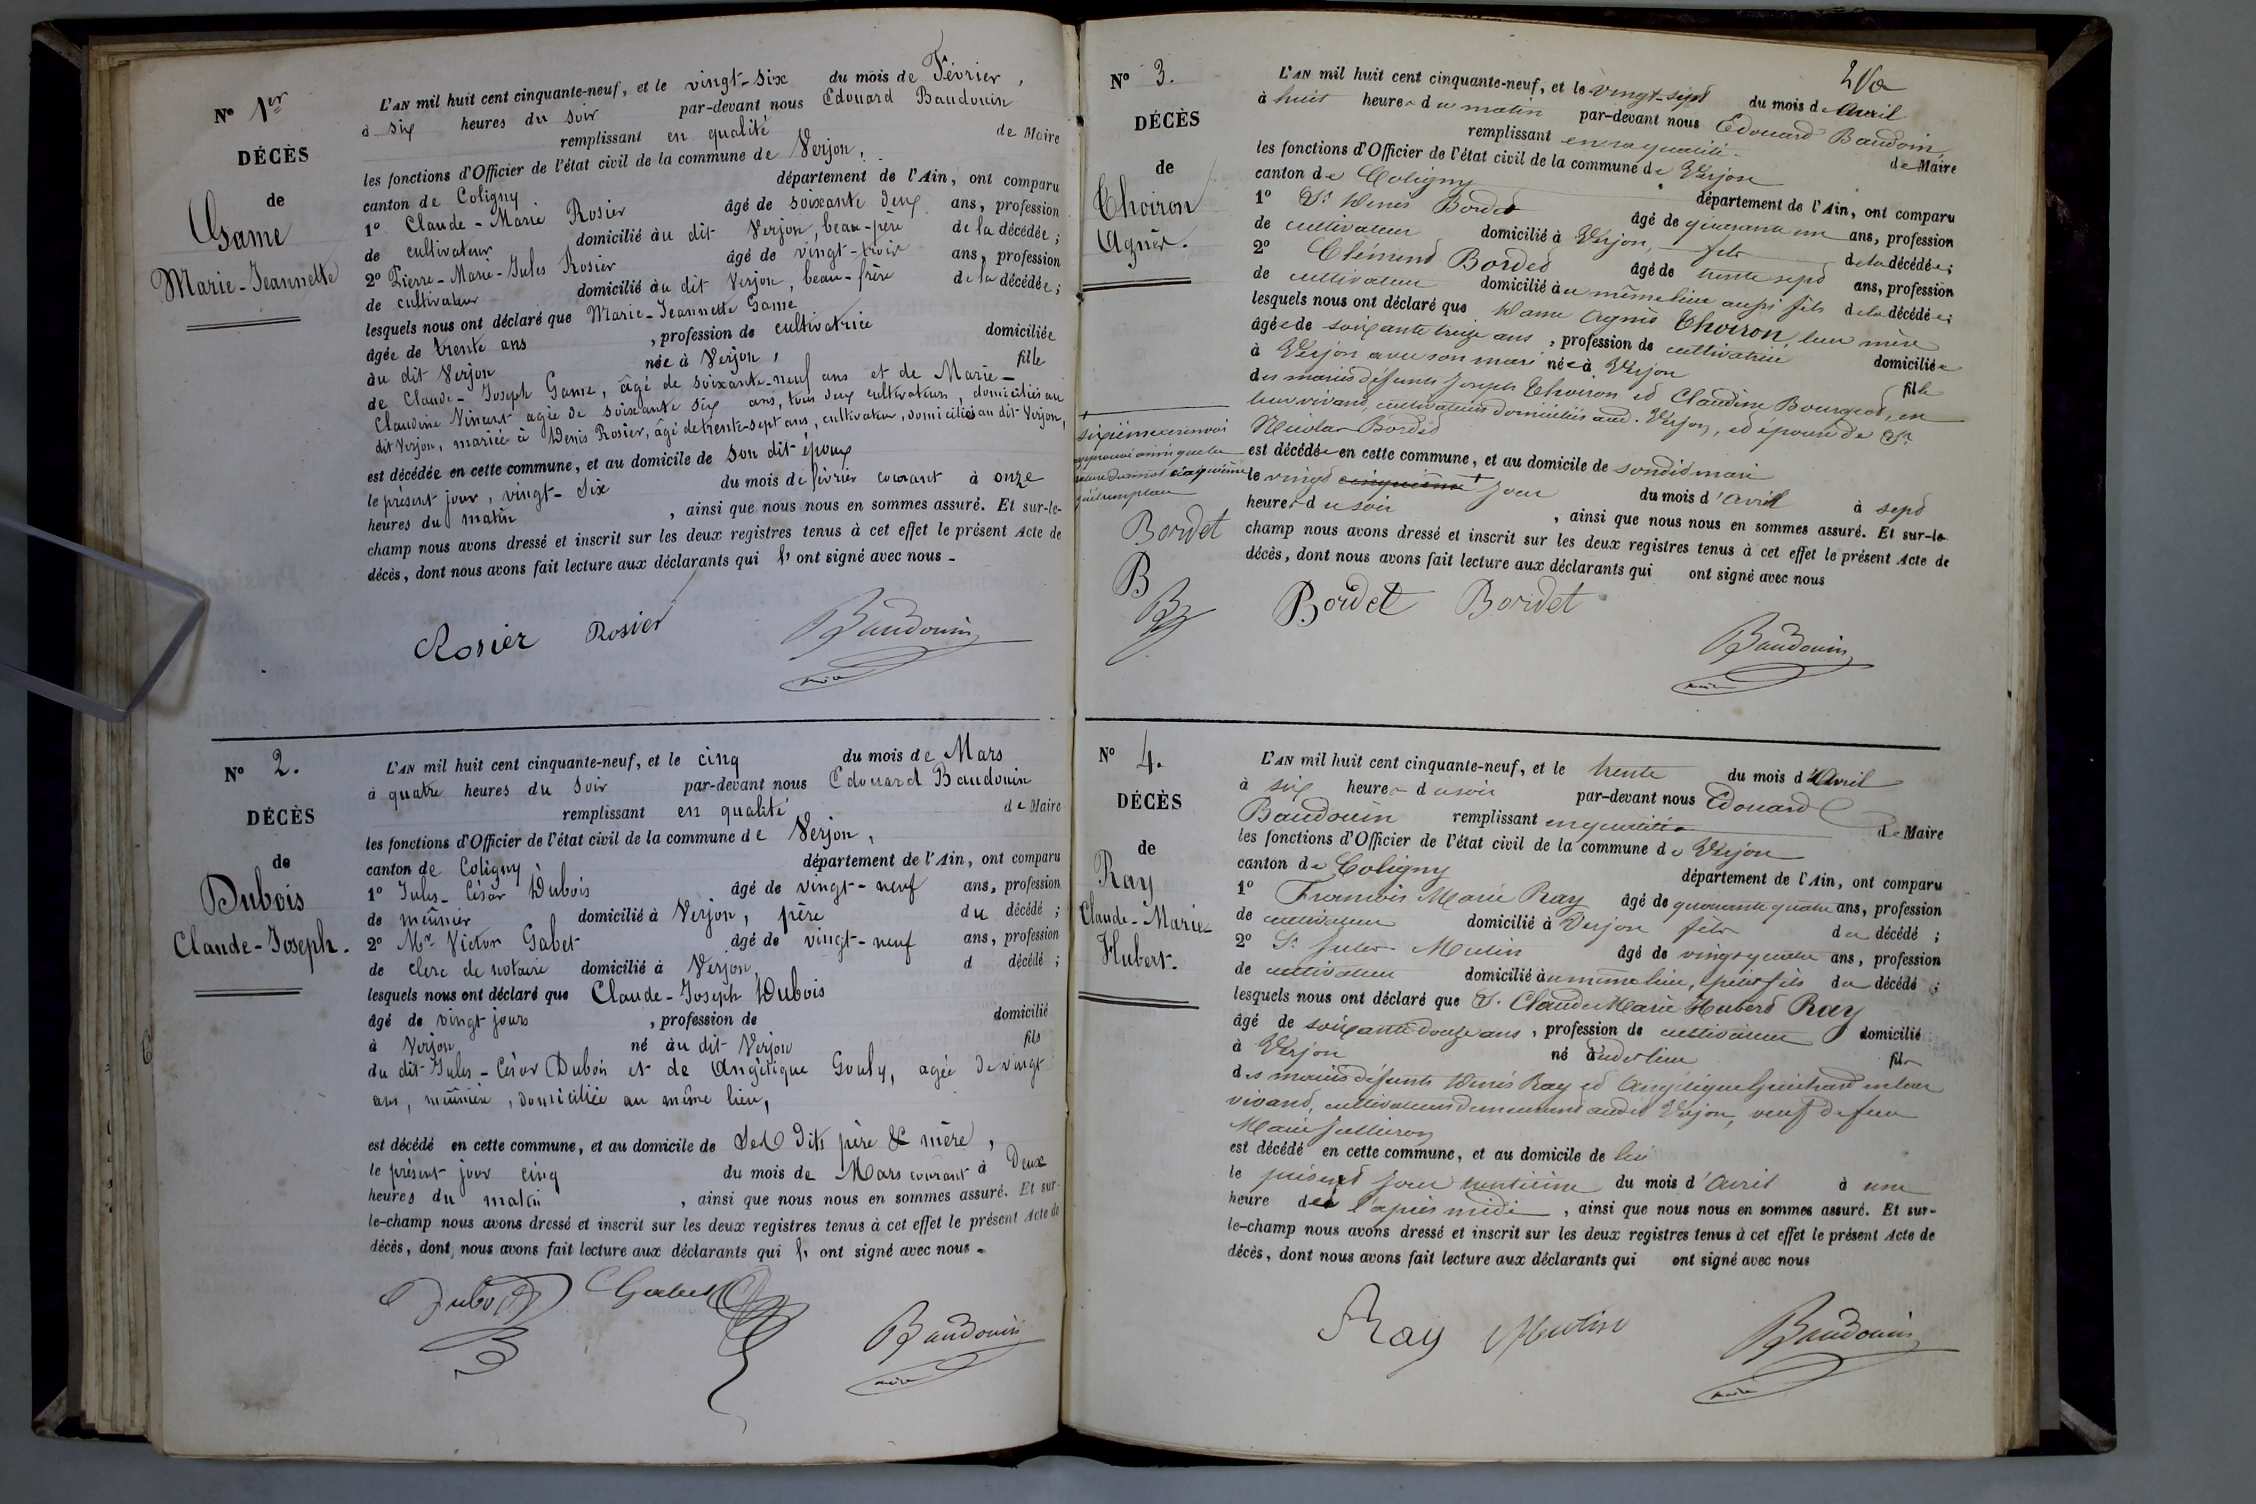 N° 1er
DÉCÈS
de
Game
Marie-Jeannette
L'AN mil huit cent cinquante-neuf, et le vingt-six du mois de Février,
à six heures du soir par-devant nous Edouard Baudouin
remplissant en qualité de Maire
les fonctions d'Officier de l'état civil de la commune de Verjon,
canton de Coligny département de l'Ain, ont comparu
1° Claude-Marie Rosier âgé de soixante deux ans, profession
de cultivateur domicilié au dit Verjon, beau-père de la décédée;
2° Pierre-Marie-Jules Rosier âgé de vingt-trois ans, profession
de cultivateur domicilié au dit Verjon, beau-frère de la décédée;
lesquels nous ont déclaré que Marie-Jeannette Game
âgée de trente ans, profession de cultivatrice domiciliée
au dit Verjon née à Verjon, fille
de Claude-Joseph Game, âgé de soixante-neuf ans et de Marie-
Claudine Vincent agée de soixante six ans, tous deux cultivateurs, domiciliés au
dit Verjon, mariée à Denis Rosier, âgé de trente-sept ans, cultivateur, domicilié au dit Verjon,
est décédée en cette commune, et au domicile de son dit époux
le présent jour, vingt-six du mois de février courant à onze
heures du matin, ainsi que nous nous en sommes assuré. Et sur-le-
champ nous avons dressé et inscrit sur les deux registres tenus à cet effet le présent Acte de
décès, dont nous avons fait lecture aux déclarants qui l' ont signé avec nous -
Rosier Rosier Baudouin
maire
N° 2.
DÉCÈS
de
Dubois
Claude-Joseph.
L'AN mil huit cent cinquante-neuf, et le cinq du mois de Mars
à quatre heures du soir par-devant nous Edouard Baudouin
remplissant en qualité de Maire
les fonctions d'Officier de l'état civil de la commune de Verjon,
canton de Coligny département de l'Ain, ont comparu
1° Jules-César Dubois âgé de vingt-neuf ans, profession
de meûnier domicilié à Verjon, père du décédé;
2° Mr Victor Gabet âgé de vingt-neuf ans, profession
de clerc de notaire domicilié à Verjon d décédé;
lesquels nous ont déclaré que Claude-Joseph Dubois
âgé de vingt jours, profession de domicilié
à Verjon né au dit Verjon fils
du dit Jules-César Dubois et de Angélique Gouly, agée de vingt
ans, meûnière, domiciliée au même lieu,
est décédé en cette commune, et au domicile de Ses dits père & mère,
le présent jour cinq du mois de Mars courant à Deux
heures du matin, ainsi que nous nous en sommes assuré. Et sur-
le-champ nous avons dressé et inscrit sur les deux registres tenus à cet effet le présent Acte de
décès, dont nous avons fait lecture aux déclarants qui l' ont signé avec nous -
Dubois Gabet
Baudouin
maire
N° 3.
DÉCÈS
de
Thoiron
Agnès.
L'AN mil huit cent cinquante-neuf, et le vingt-sept du mois d'Avril
à huit heures du matin par-devant nous Edouard Baudouin,
remplissant en sa qualité de Maire
les fonctions d'Officier de l'état civil de la commune de Verjon
canton de Coligny département de l'Ain, ont comparu
1° Sr Denis Bordet âgé de quarante un ans, profession
de cultivateur domicilié à Verjon, fils de la décédée;
2° Clément Bordet âgé de trente sept ans, profession
de cultivateur domicilié au même lieu aussi fils de la décédée;
lesquels nous ont déclaré que Dame Agnès Thoiron, leur mère
âgée de soixante treize ans, profession de cultivatrice domiciliée
à Verjon avec son mari née à Verjon fille
des mariés défunts Joseph Thoiron et Claudine Bourgeot, en
leur vivant, cultivateurs domiciliés aud. Verjon, et épouse de Sr
Nicolas Bordet
est décédée en cette commune, et au domicile de son dit mari
le vingt cinquième jour du mois d'Avril à sept
heures du soir, ainsi que nous nous en sommes assuré. Et sur-le-
champ nous avons dressé et inscrit sur les deux registres tenus à cet effet le présent Acte de
décès, dont nous avons fait lecture aux déclarants qui ont signé avec nous
sixième renvoi
approuvé ainsi que la
rature du mot cinquième
qu'il remplace
Bordet
B
Bordet Bordet
Baudouin
maire
N° 4.
DÉCÈS
de
Ray
Claude-Marie
Hubert.
L'AN mil huit cent cinquante-neuf, et le trente du mois d'Avril
à six heures du soir par-devant nous Edouard
Baudouin remplissant en qualité de Maire
les fonctions d'Officier de l'état civil de la commune de Verjon
canton de Coligny département de l'Ain, ont comparu
1° François Marie Ray âgé de quarante quatre ans, profession
de cultivateur domicilié à Verjon fils du décédé;
2° Sr Jules Mutin âgé de vingt quatre ans, profession
de cultivateur domicilié au même lieu, petit fils du décédé;
lesquels nous ont déclaré que Sr Claude Marie Hubert Ray
âgé de soixante douze ans, profession de cultivateur domicilié
à Verjon né au dit lieu fils
des mariés défunts Denis Ray et Angélique Guichard en leur
vivant, cultivateurs demeurant audit Verjon, veuf de feue
Marie Jullieron
est décédé en cette commune, et au domicile de lui
le présent jour trentième du mois d'Avril à une
heure de l'après midi, ainsi que nous nous en sommes assuré. Et sur-
le-champ nous avons dressé et inscrit sur les deux registres tenus à cet effet le présent Acte de
décès, dont nous avons fait lecture aux déclarants qui ont signé avec nous
Ray Mutin Baudouin
maire